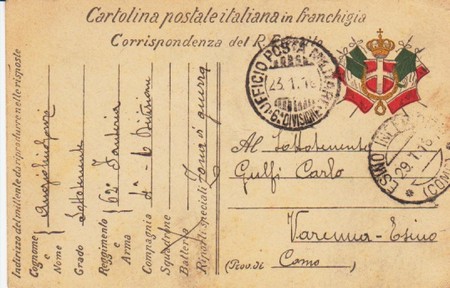 Cartolina postale italiana in franchigia
Corrispondenza del R. Esercito
UFFICIO POSTA MILITARE
23.1.16
6ª DIVISIONE
ESINO
29.1.16
(COMO)
Al Sottotenente
Gulfi Carlo
Varenna-Esino
(Prov. di Como)
Indirizzo del mittente da riprodurre nelle risposte
Cognome e Nome
Grado Sottotenente
Reggimento e Arma 62° Fanteria
Compagnia 4ª - 6 Divisione
Squadrone
Batteria
Riparti speciali Zona di guerra